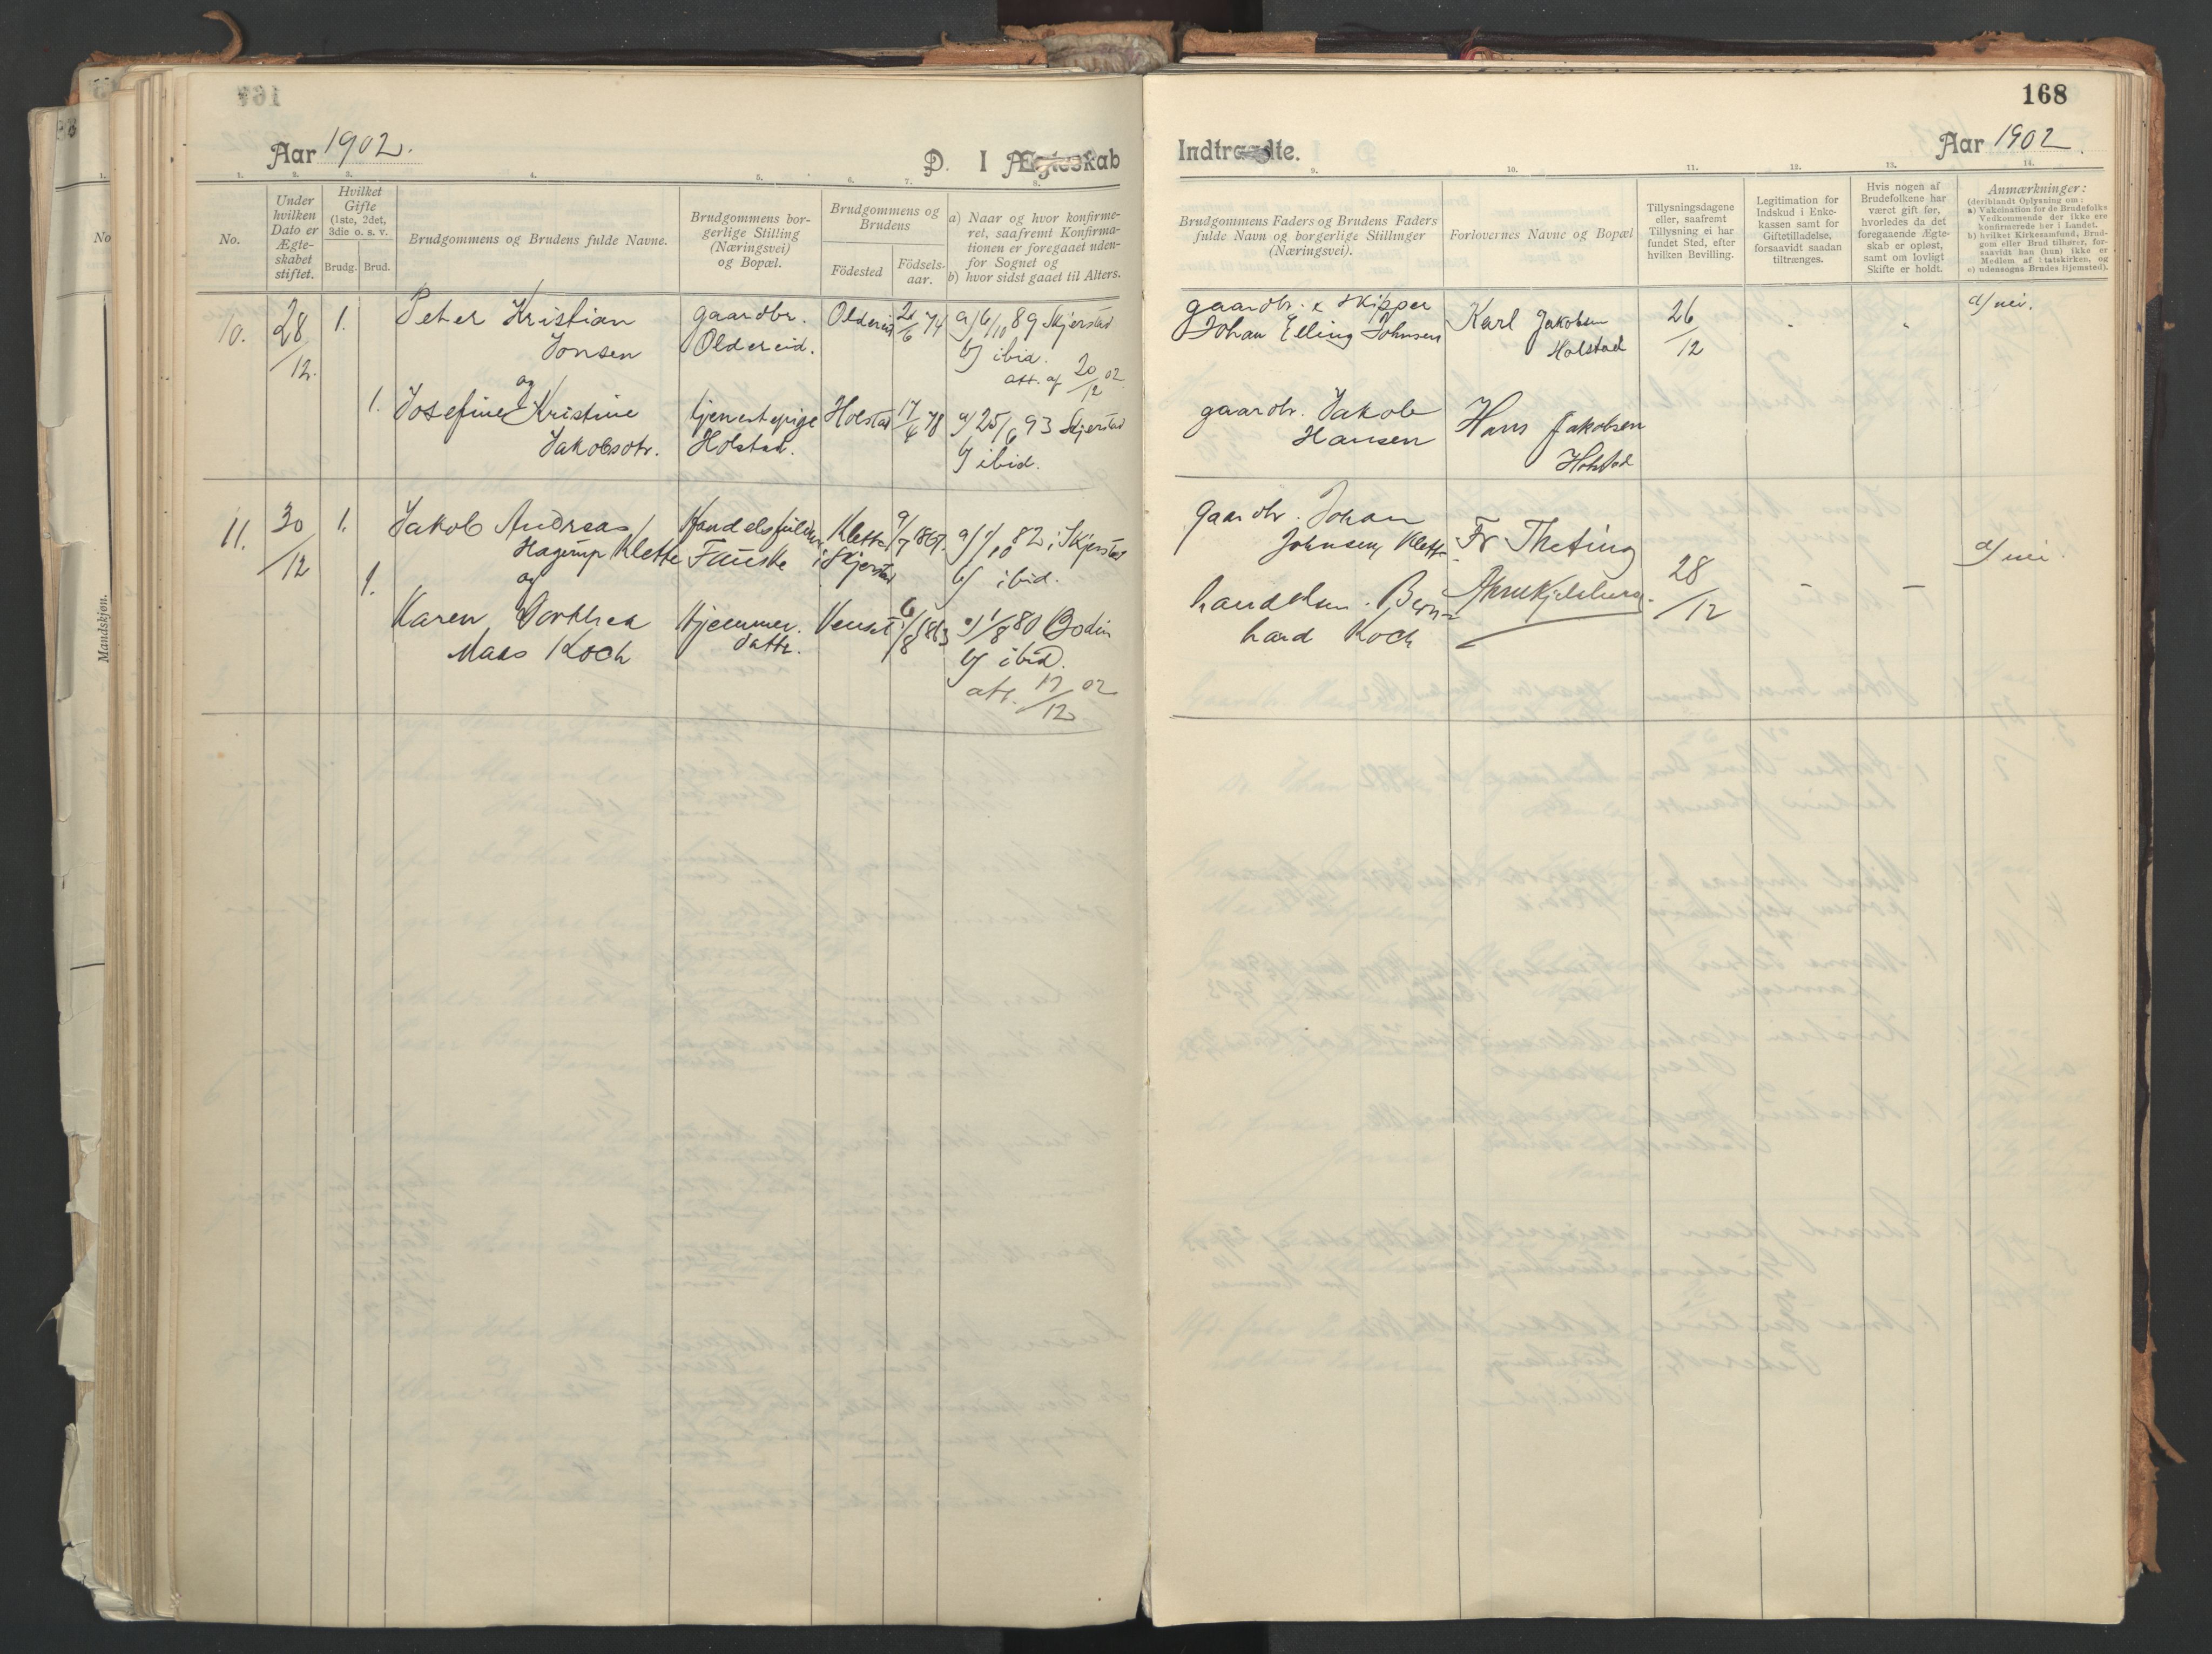 Aar 1902.
D. I Ægteskab
1. 2. 3. 4. 5. 6. 7. 8.
No.
Under hvilken Dato er Ægte-skabet stiftet.
Hvilket Gifte (1ste, 2det, 3die o. s. v.
Brudg. Brud.
Brudgommens og Brudens fulde Navne.
Brudgommens bor-
gerlige Stilling
(Næringsvei)
og Bopæl.
Brudgommens og
Brudens
Födested
Födsels-
aar.
a) Naar og hvor konfirme-
ret, saafremt Konfirma-
tionen er foregaaet uden-
for Sognet og
b) hvor sidst gaaet til Alters.
10. 28/12. 1. Peter Kristian
Jonsen
gaardbr.
Oldereid.
Oldereid
21/6 74
a) 6/10 89 Skjerstad
b) ibid.
att. af 20/12 02
og
1. Josefine Kristine
Jakobsdtr.
tjenestepige
Holstad.
Holstad
17/4 78
a) 25/6 93 Skjerstad
b) ibid.
11. 30/12 1. Jakob Andreas
Hagerup Klette
Fauske
Klette
i Skjerstad
9/7 1867.
a) 1/10 82 i Skjerstad
b) ibid.
og
1. Karen Dorthea
Maas Koch
Hjemmev.
datter.
Venset
6/8 1863
a) 1/8 80 Bodin
b) ibid.
att. 17/12 02
168
Indtraadte.
Aar 1902.
9. 10. 11. 12. 13. 14.
Brudgommens Faders og Brudens Faders
fulde Navn og borgerlige Stillinger
(Næringsvei).
Forlovernes Navne og Bopæl
Tillysningsdagene
eller, saafremt
Tillysning ei har
fundet Sted, efter
hvilken Bevilling.
Legitimation for
Indskud i Enke-
kassen samt for
Giftetilladelse,
forsaavidt saadan
tiltrænges.
Hvis nogen af
Brudefolkene har
været gift før,
hvorledes da det
foregaaende Ægte-
skab er opløst,
samt om lovligt
Skifte er holdt.
Anmærkninger:
(deriblandt Oplysning om:
a) Vakcination for de Brudefolks
Vedkommende der ikke ere
konfirmerede her i Landet.
b) hvilket Kirkesamfund, Brud-
gom eller Brud tilhører, for-
saavidt han (hun) ikke er
Medlem af Statskirken, og
c) udensogns Brudes Hjemsted).
gaardbr. & skipper
Johan Elling Johnsen
Karl Jakobsen
Holstad
26/12
a) nei.
gaardbr. Jakob
Hansen
Hans Jakobsen
Holstad
gaardbr. Johan
Johnsen, Klette
Fr Theting
28/12 - -
a) nei.
handelsm. Bern-
hard Koch
No
Mandskjøn.